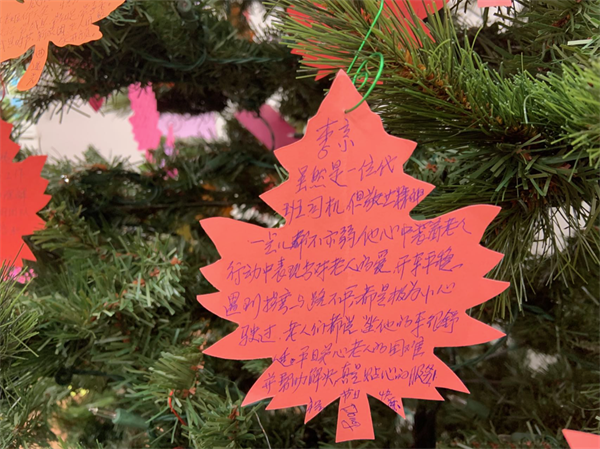 李京
虽然是一位代
班司机,但敬业精神
一点儿都不示弱他心中装着老人
行动中表现出对老人的爱,开车平稳、
遇到拐弯与路不平都是极为小心
驶过.老人们都说坐他的车很舒
适.平日关心老人的困难
并帮助解决真是贴心的服务
节日